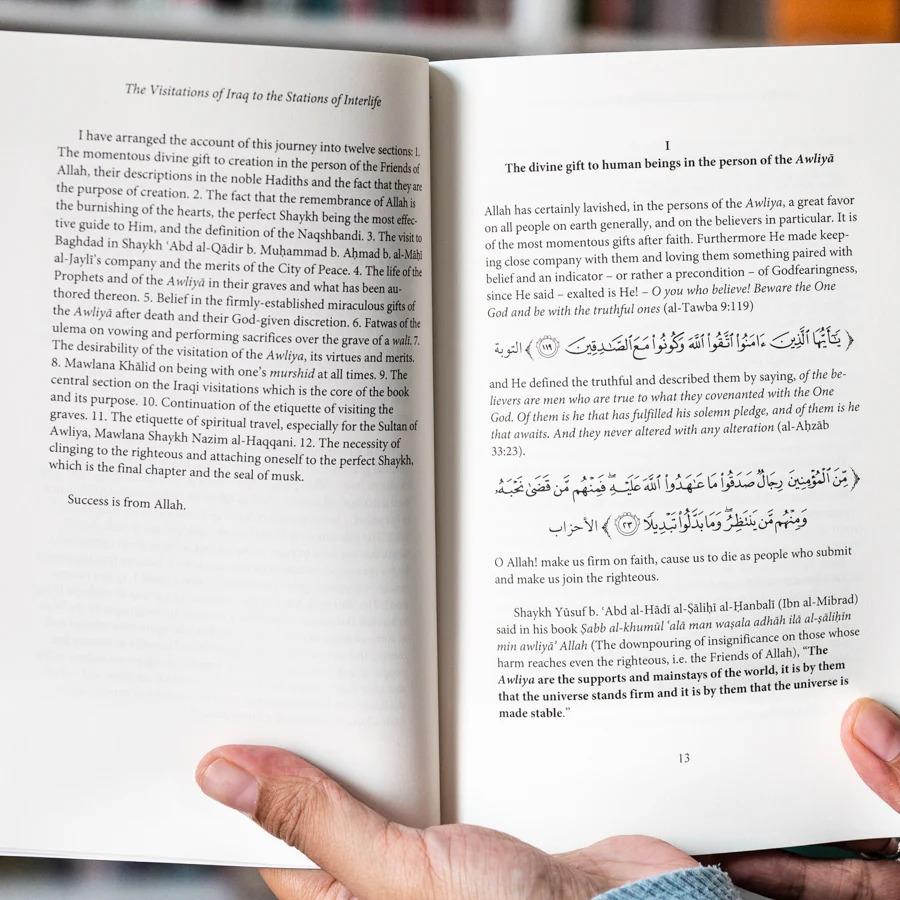 The Visitations of Iraq to the Stations of Interlife
I have arranged the account of this journey into twelve sections: 1.
The momentous divine gift to creation in the person of the Friends of
Allah, their descriptions in the noble Hadiths and the fact that they are
the purpose of creation. 2. The fact that the remembrance of Allah is
the burnishing of the hearts, the perfect Shaykh being the most effec-
tive guide to Him, and the definition of the Naqshbandi. 3. The visit to
Baghdad in Shaykh ʿAbd al-Qādir b. Muḥammad b. Aḥmad b. al-Māḥi
al-Jaylī’s company and the merits of the City of Peace. 4. The life of the
Prophets and of the Awliyā in their graves and what has been au-
thored thereon. 5. Belief in the firmly-established miraculous gifts of
the Awliyā after death and their God-given discretion. 6. Fatwas of the
ulema on vowing and performing sacrifices over the grave of a wali. 7.
The desirability of the visitation of the Awliya, its virtues and merits.
8. Mawlana Khālid on being with one’s murshid at all times. 9. The
central section on the Iraqi visitations which is the core of the book
and its purpose. 10. Continuation of the etiquette of visiting the
graves. 11. The etiquette of spiritual travel, especially for the Sultan of
Awliya, Mawlana Shaykh Nazim al-Haqqani. 12. The necessity of
clinging to the righteous and attaching oneself to the perfect Shaykh,
which is the final chapter and the seal of musk.
Success is from Allah.
I
The divine gift to human beings in the person of the Awliyā
Allah has certainly lavished, in the persons of the Awliya, a great favor
on all people on earth generally, and on the believers in particular. It is
of the most momentous gifts after faith. Furthermore He made keep-
ing close company with them and loving them something paired with
belief and an indicator – or rather a precondition – of Godfearingness,
since He said – exalted is He! – O you who believe! Beware the One
God and be with the truthful ones (al-Tawba 9:119)
﴿ يَٰٓأَيُّهَا ٱلَّذِينَ ءَامَنُوا۟ ٱتَّقُوا۟ ٱللَّهَ وَكُونُوا۟ مَعَ ٱلصَّٰدِقِينَ ١١٩ ﴾ التوبة
and He defined the truthful and described them by saying, of the be-
lievers are men who are true to what they covenanted with the One
God. Of them is he that has fulfilled his solemn pledge, and of them is he
that awaits. And they never altered with any alteration (al-Aḥzāb
33:23).
﴿ مِّنَ ٱلْمُؤْمِنِينَ رِجَالٌ صَدَقُوا۟ مَا عَٰهَدُوا۟ ٱللَّهَ عَلَيْهِ ۖ فَمِنْهُم مَّن قَضَىٰ نَحْبَهُۥ
وَمِنْهُم مَّن يَنتَظِرُ ۖ وَمَا بَدَّلُوا۟ تَبْدِيلًا ٢٣ ﴾ الأحزاب
O Allah! make us firm on faith, cause us to die as people who submit
and make us join the righteous.
Shaykh Yūsuf b. ʿAbd al-Hādī al-Ṣāliḥī al-Ḥanbalī (Ibn al-Mibrad)
said in his book Ṣabb al-khumūl ʿalā man waṣala adhāh ilā al-ṣāliḥīn
min awliyā’ Allah (The downpouring of insignificance on those whose
harm reaches even the righteous, i.e. the Friends of Allah), “The
Awliya are the supports and mainstays of the world, it is by them
that the universe stands firm and it is by them that the universe is
made stable.”
13